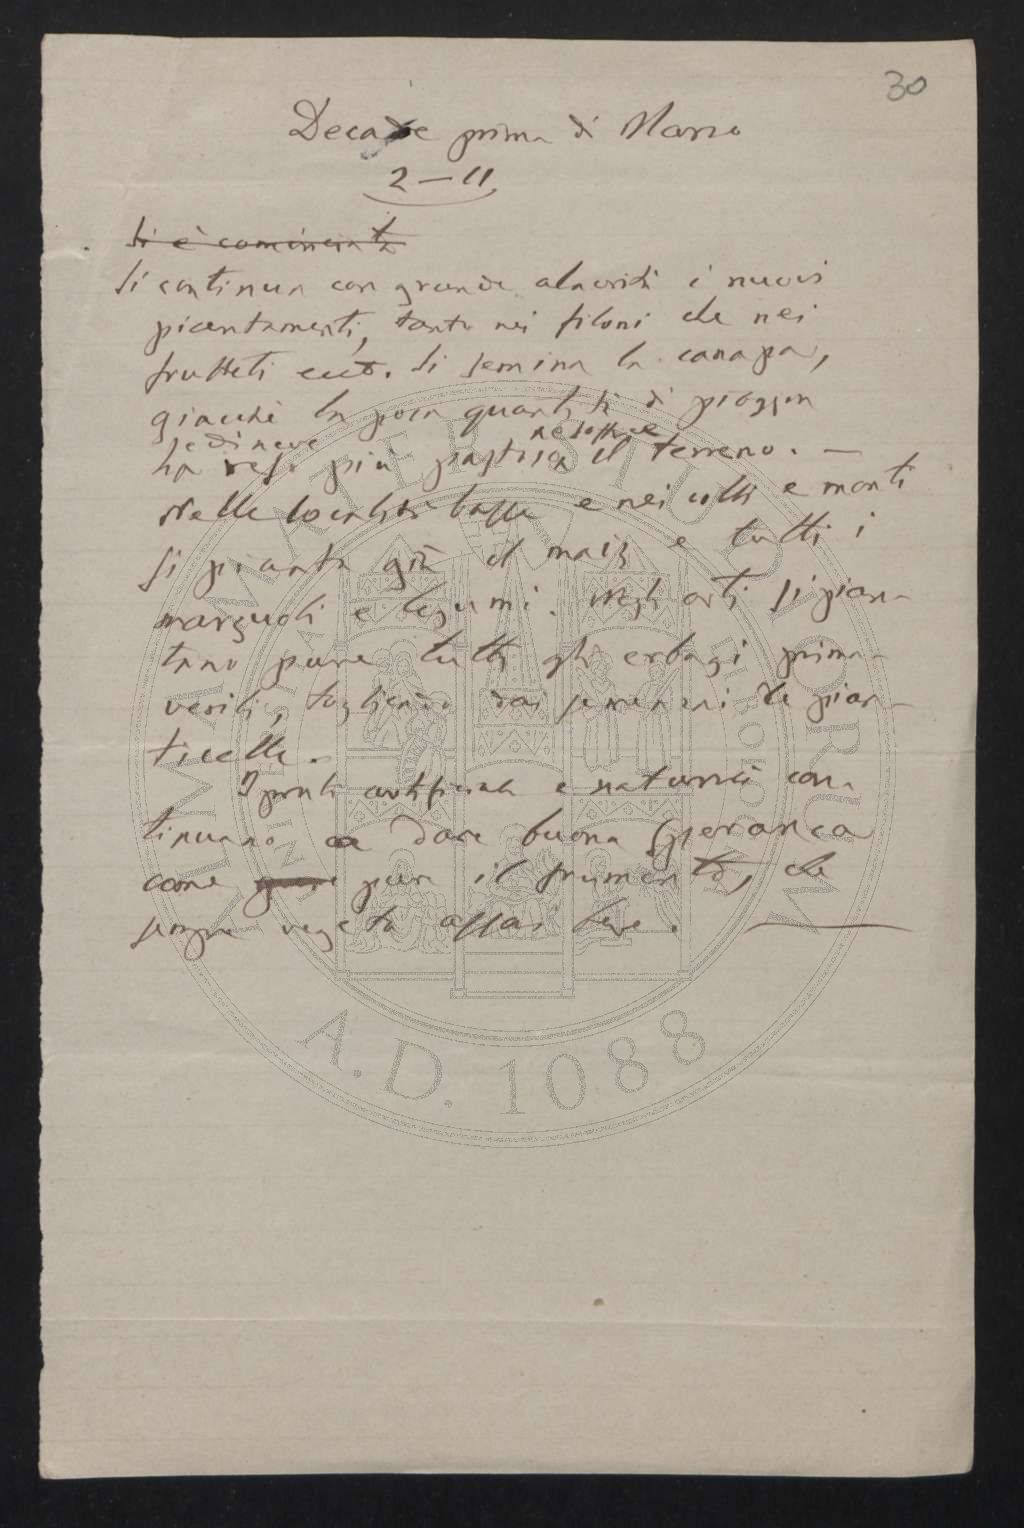 30
Decade prima di Marzo
2 — 11
Si è cominciata
Si continua con grande alacrità i nuovi
piantamenti, tanto nei filoni che nei
frutteti ecc. Si semina la canapa,
giacchè la poca quantità di pioggia
e di neve
ha reso più il terreno. —
Nelle località basse e nei colli e monti
si pianta già il maiz e tutti i
marzuoli e legumi. Negli orti si pian-
tano pure tutti gli erbagi prima-
verili, togliendo dai semenzai le pian-
ticelle.
I prati artificiali e naturali con-
tinuano a dare buona speranza
come pure il frumento, che
sempre vegeta assai bene.
ALMA MATER STUDIORUM
A.D. 1088